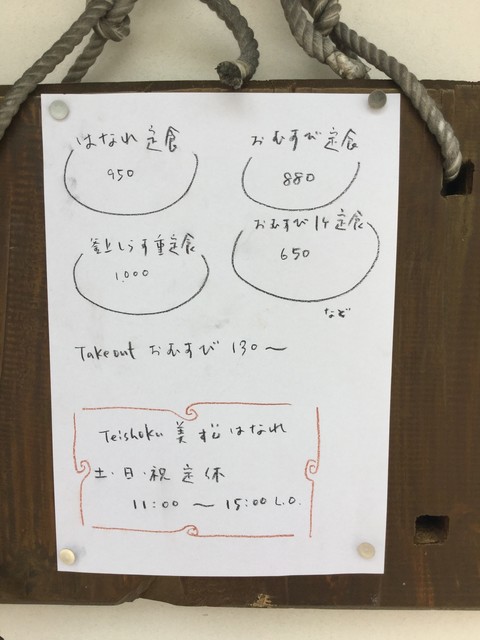 はなれ定食
950
おむすび定食
880
釜上しらす重定食
1,000
おむすび1ケ定食
650
など
Takeout おむすび 130〜
Teishoku 美松はなれ
土・日・祝 定休
11:00 〜 15:00 L.O.